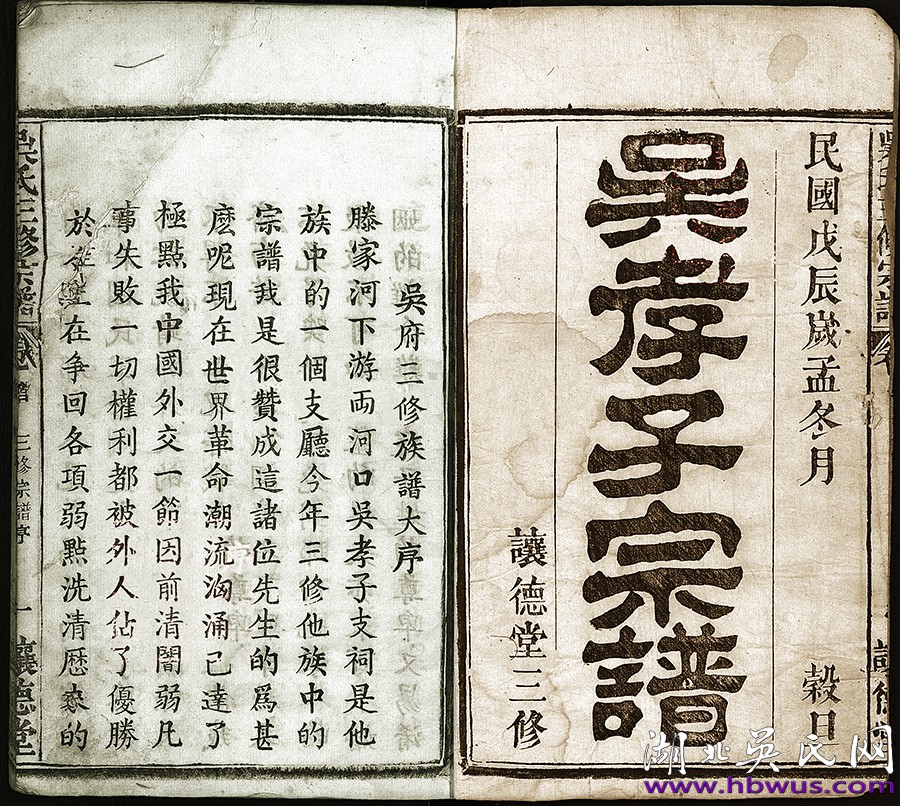 民國戊辰歲孟冬月 榖日
吳孝子宗譜
讓德堂三修
吳府三修族譜大序
滕家河下游両河口吳孝子支祠是他
族中的一個支廳今年三修他族中的
宗譜我是很贊成這諸位先生的爲甚
麽呢現在世界革命潮流洶涌已達了
極點我中國外交一節因前清闇弱凡
事失敗一切權利都被外人佔了優勝
於 在爭回各項弱點洗清歷來的
吳氏三修宗譜 三修宗譜序 一 讓德堂
湖北吳氏网
www.hbwus.com